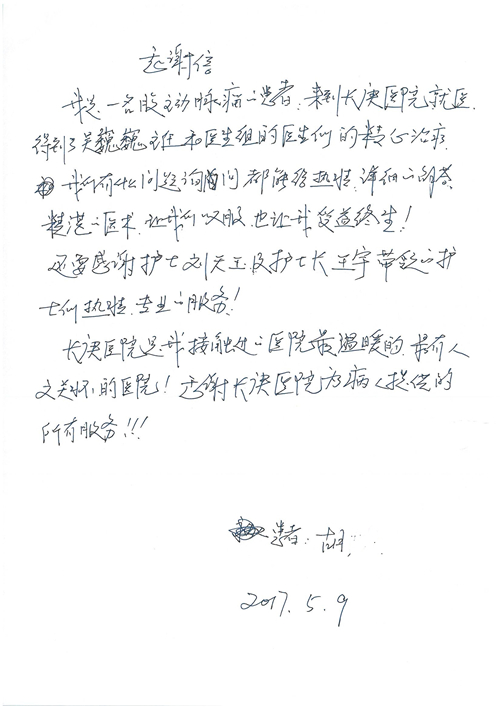 感谢信
我是一名股主动脉病的患者,来到长庚医院就医,
得到了吴巍巍主任和医生组的医生们的精心治疗
我们有什么问题询问都能给热情、详细的解答
精湛的医术,让我们叹服,也让我受益终生!
还要感谢护士刘天玉及护士长王宇带领的护
士们热情、专业的服务!
长庚医院是我接触过的医院最温暖的、最有人
文关怀的医院!感谢长庚医院为病人提供的
所有服务!!!
患者:胡
2017.5.9